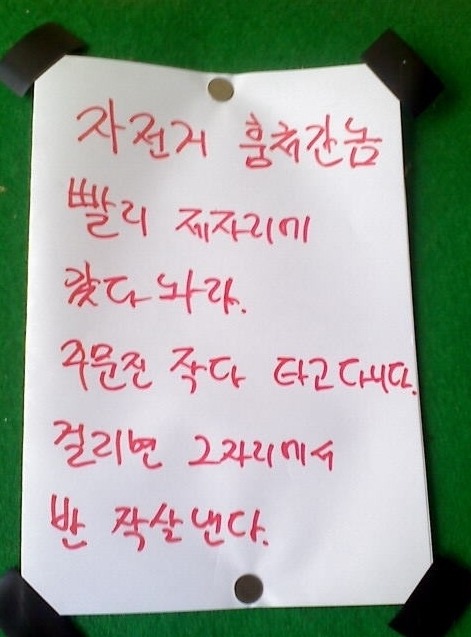 자전거 훔쳐간놈
빨리 제자리에
갖다 놔라.
주문진 작다 타고다니다.
걸리면 그자리에서
반 작살 낸다.